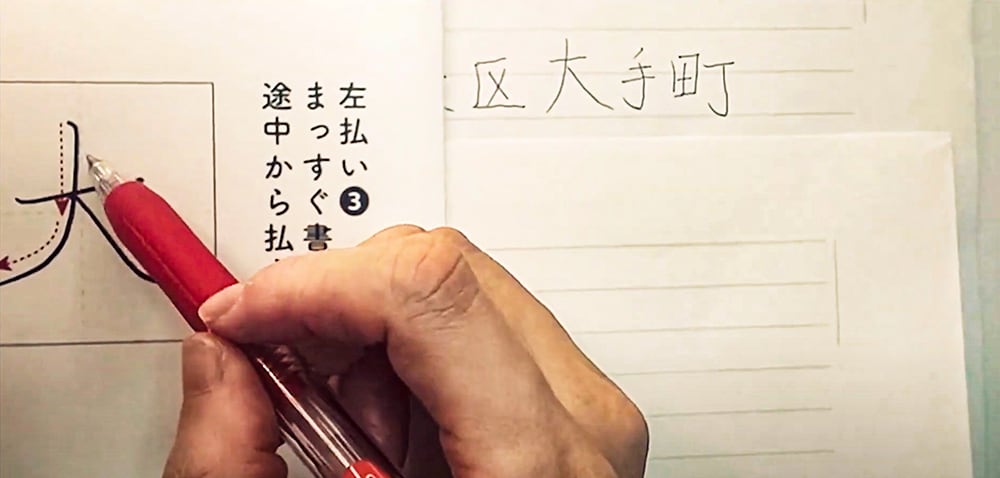 左払い❸
まっすぐ書
途中から払
大
区大手町